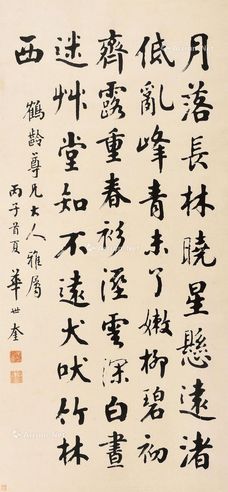 月落長林曉星懸遠渚
低亂峰青未了嫩柳碧初
齊露重春衫溼雲深白晝
迷艸堂知不遠犬吠竹林
西
鶴齡尊兄大人雅屬
丙子首夏 華世奎